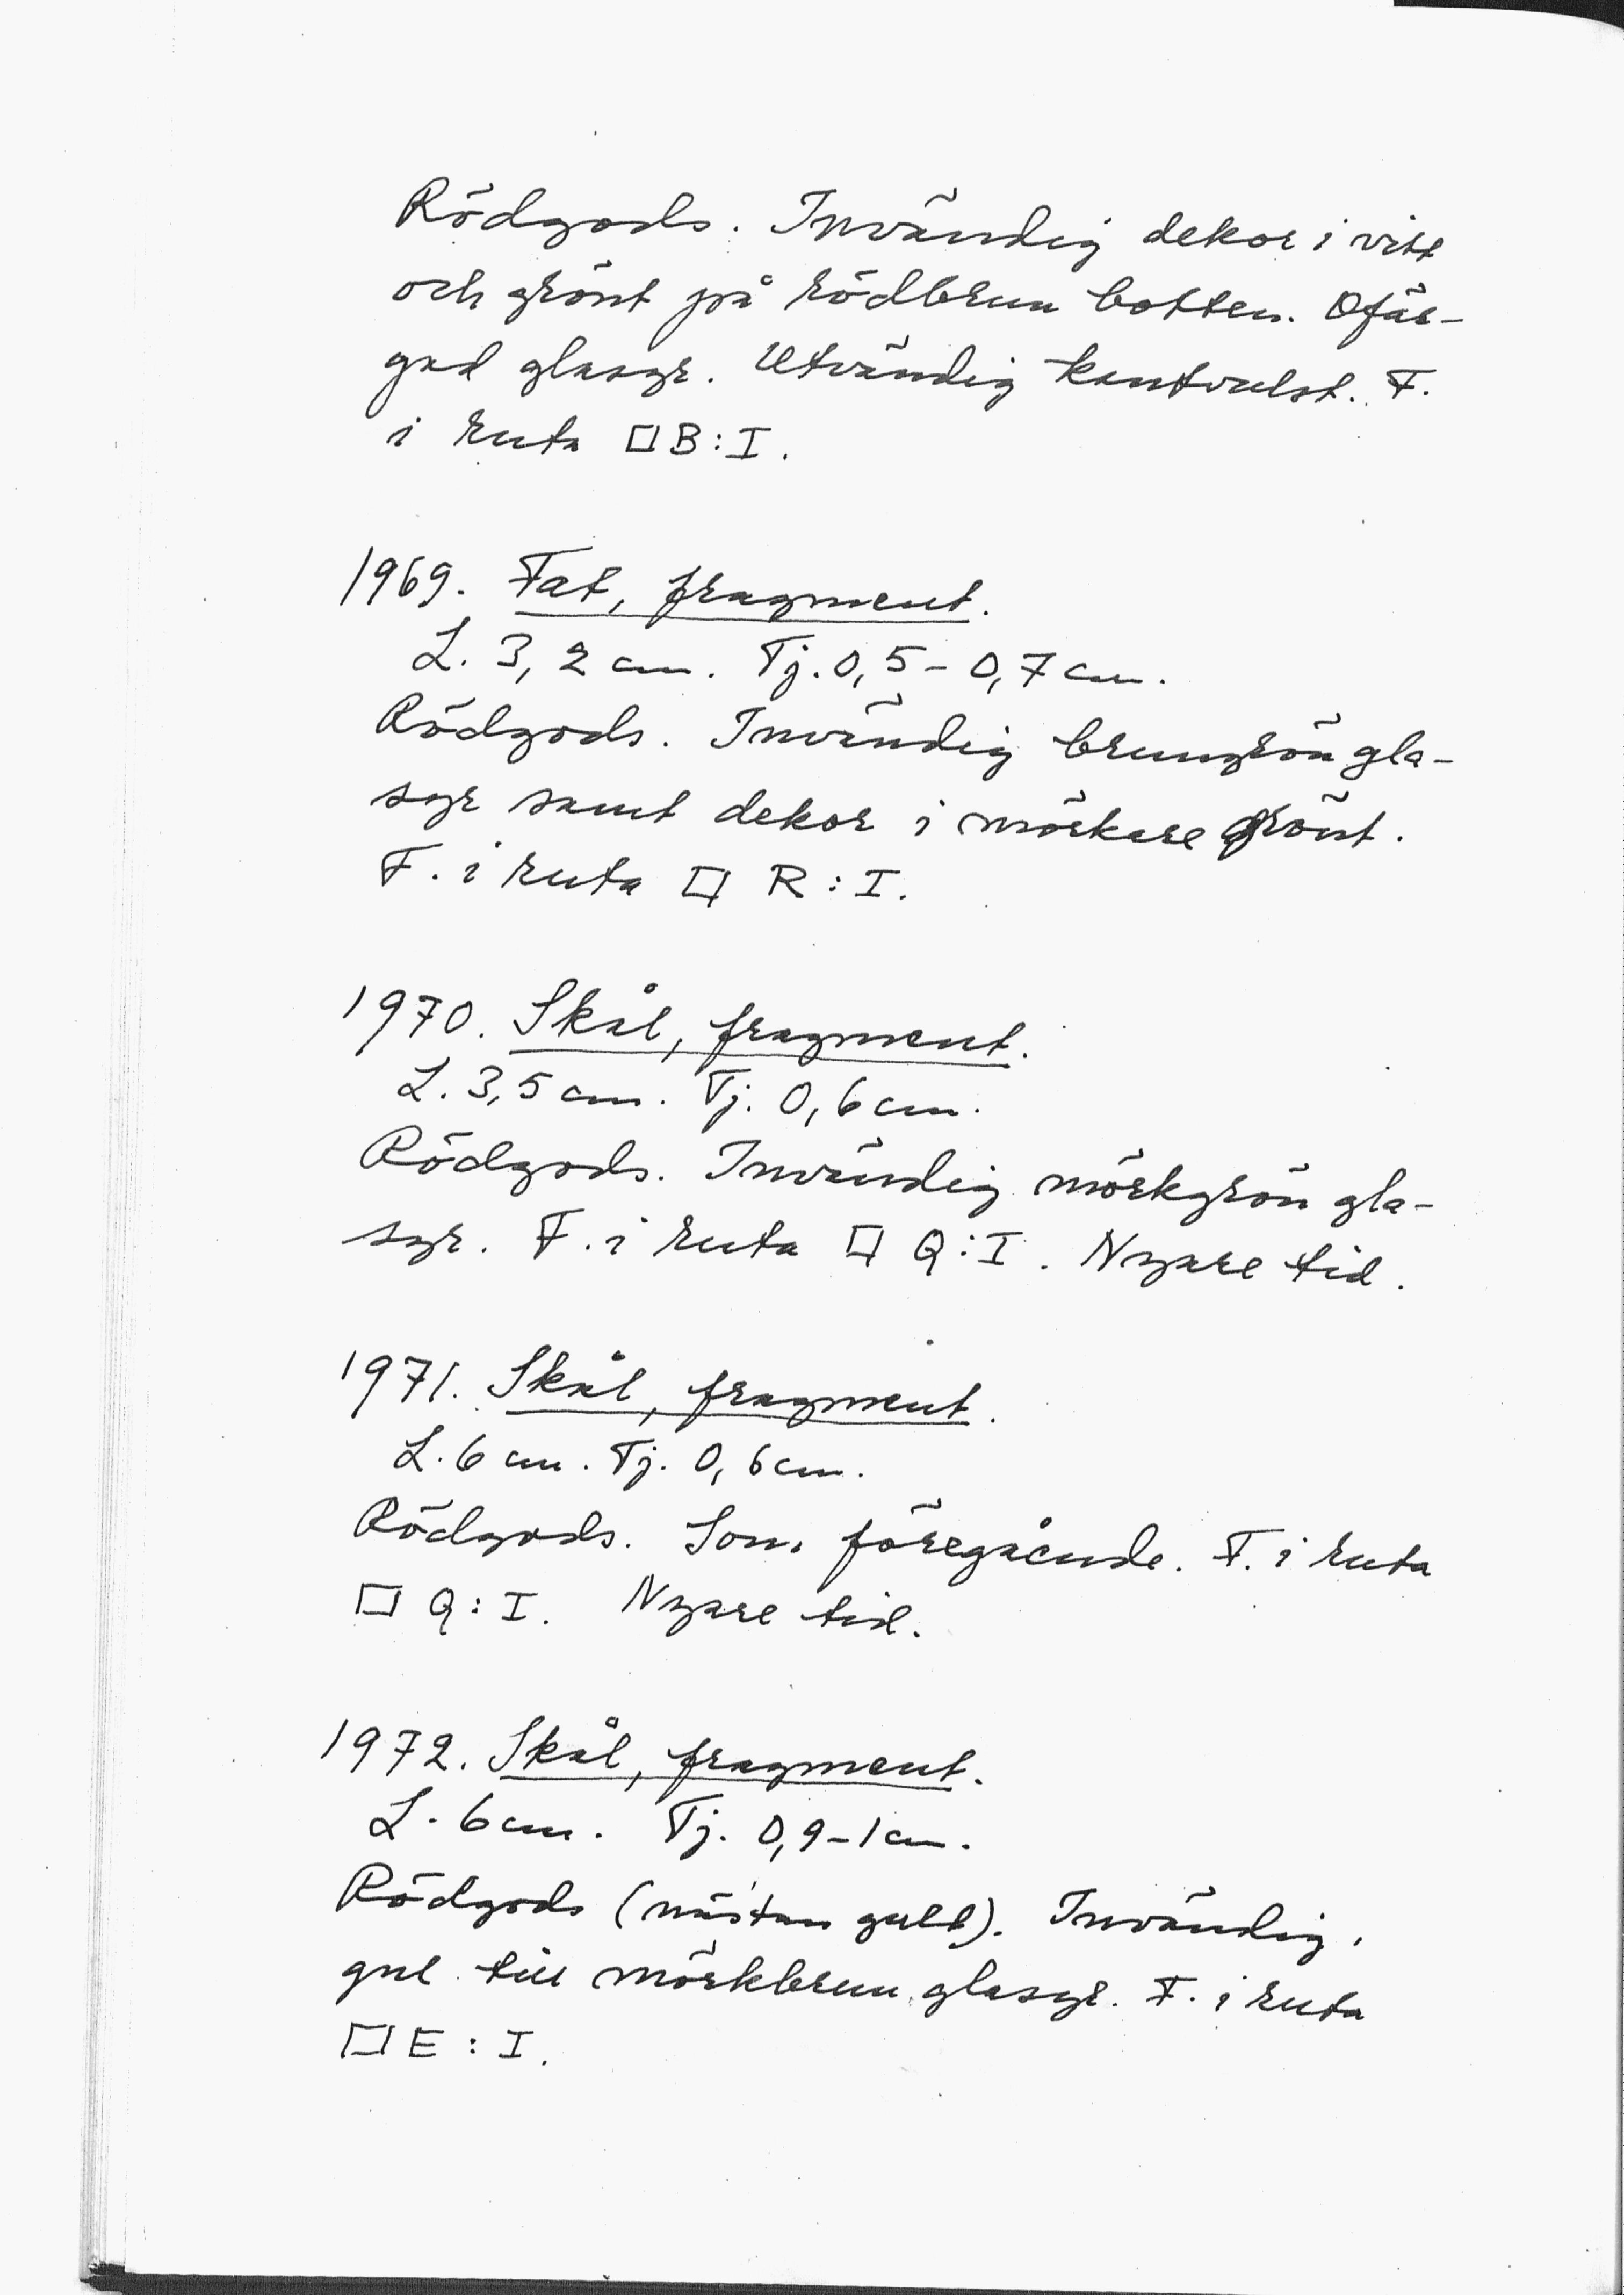 Rödgods. Invändig dekor i vitt
och grönt på rödbrun botten. Ofär-
gad glasyr. Utvändig kantvulst. F.
i ruta □ B:I.
1969. Fat, fragment.
L. 3,2 cm. Tj. 0,5-0,7 cm.
Rödgods. Invändig brungrön gla-
syr samt dekor i mörkare grönt.
F. i ruta □ R:I.
1970. Skål, fragment.
L. 3,5 cm. Tj. 0,6 cm.
Rödgods. Invändig mörkgrön gla-
syr. F. i ruta □ Q:I. Nyare tid.
1971. Skål, fragment.
L. 6 cm. Tj. 0,6 cm.
Rödgods. Som föregående. F. i ruta
□ Q:I. Nyare tid.
1972. Skål, fragment.
L. 6 cm. Tj. 0,9-1 cm.
Rödgods (nästan gult). Invändig
gul till mörkbrun glasyr. F. i ruta
□ E:I.